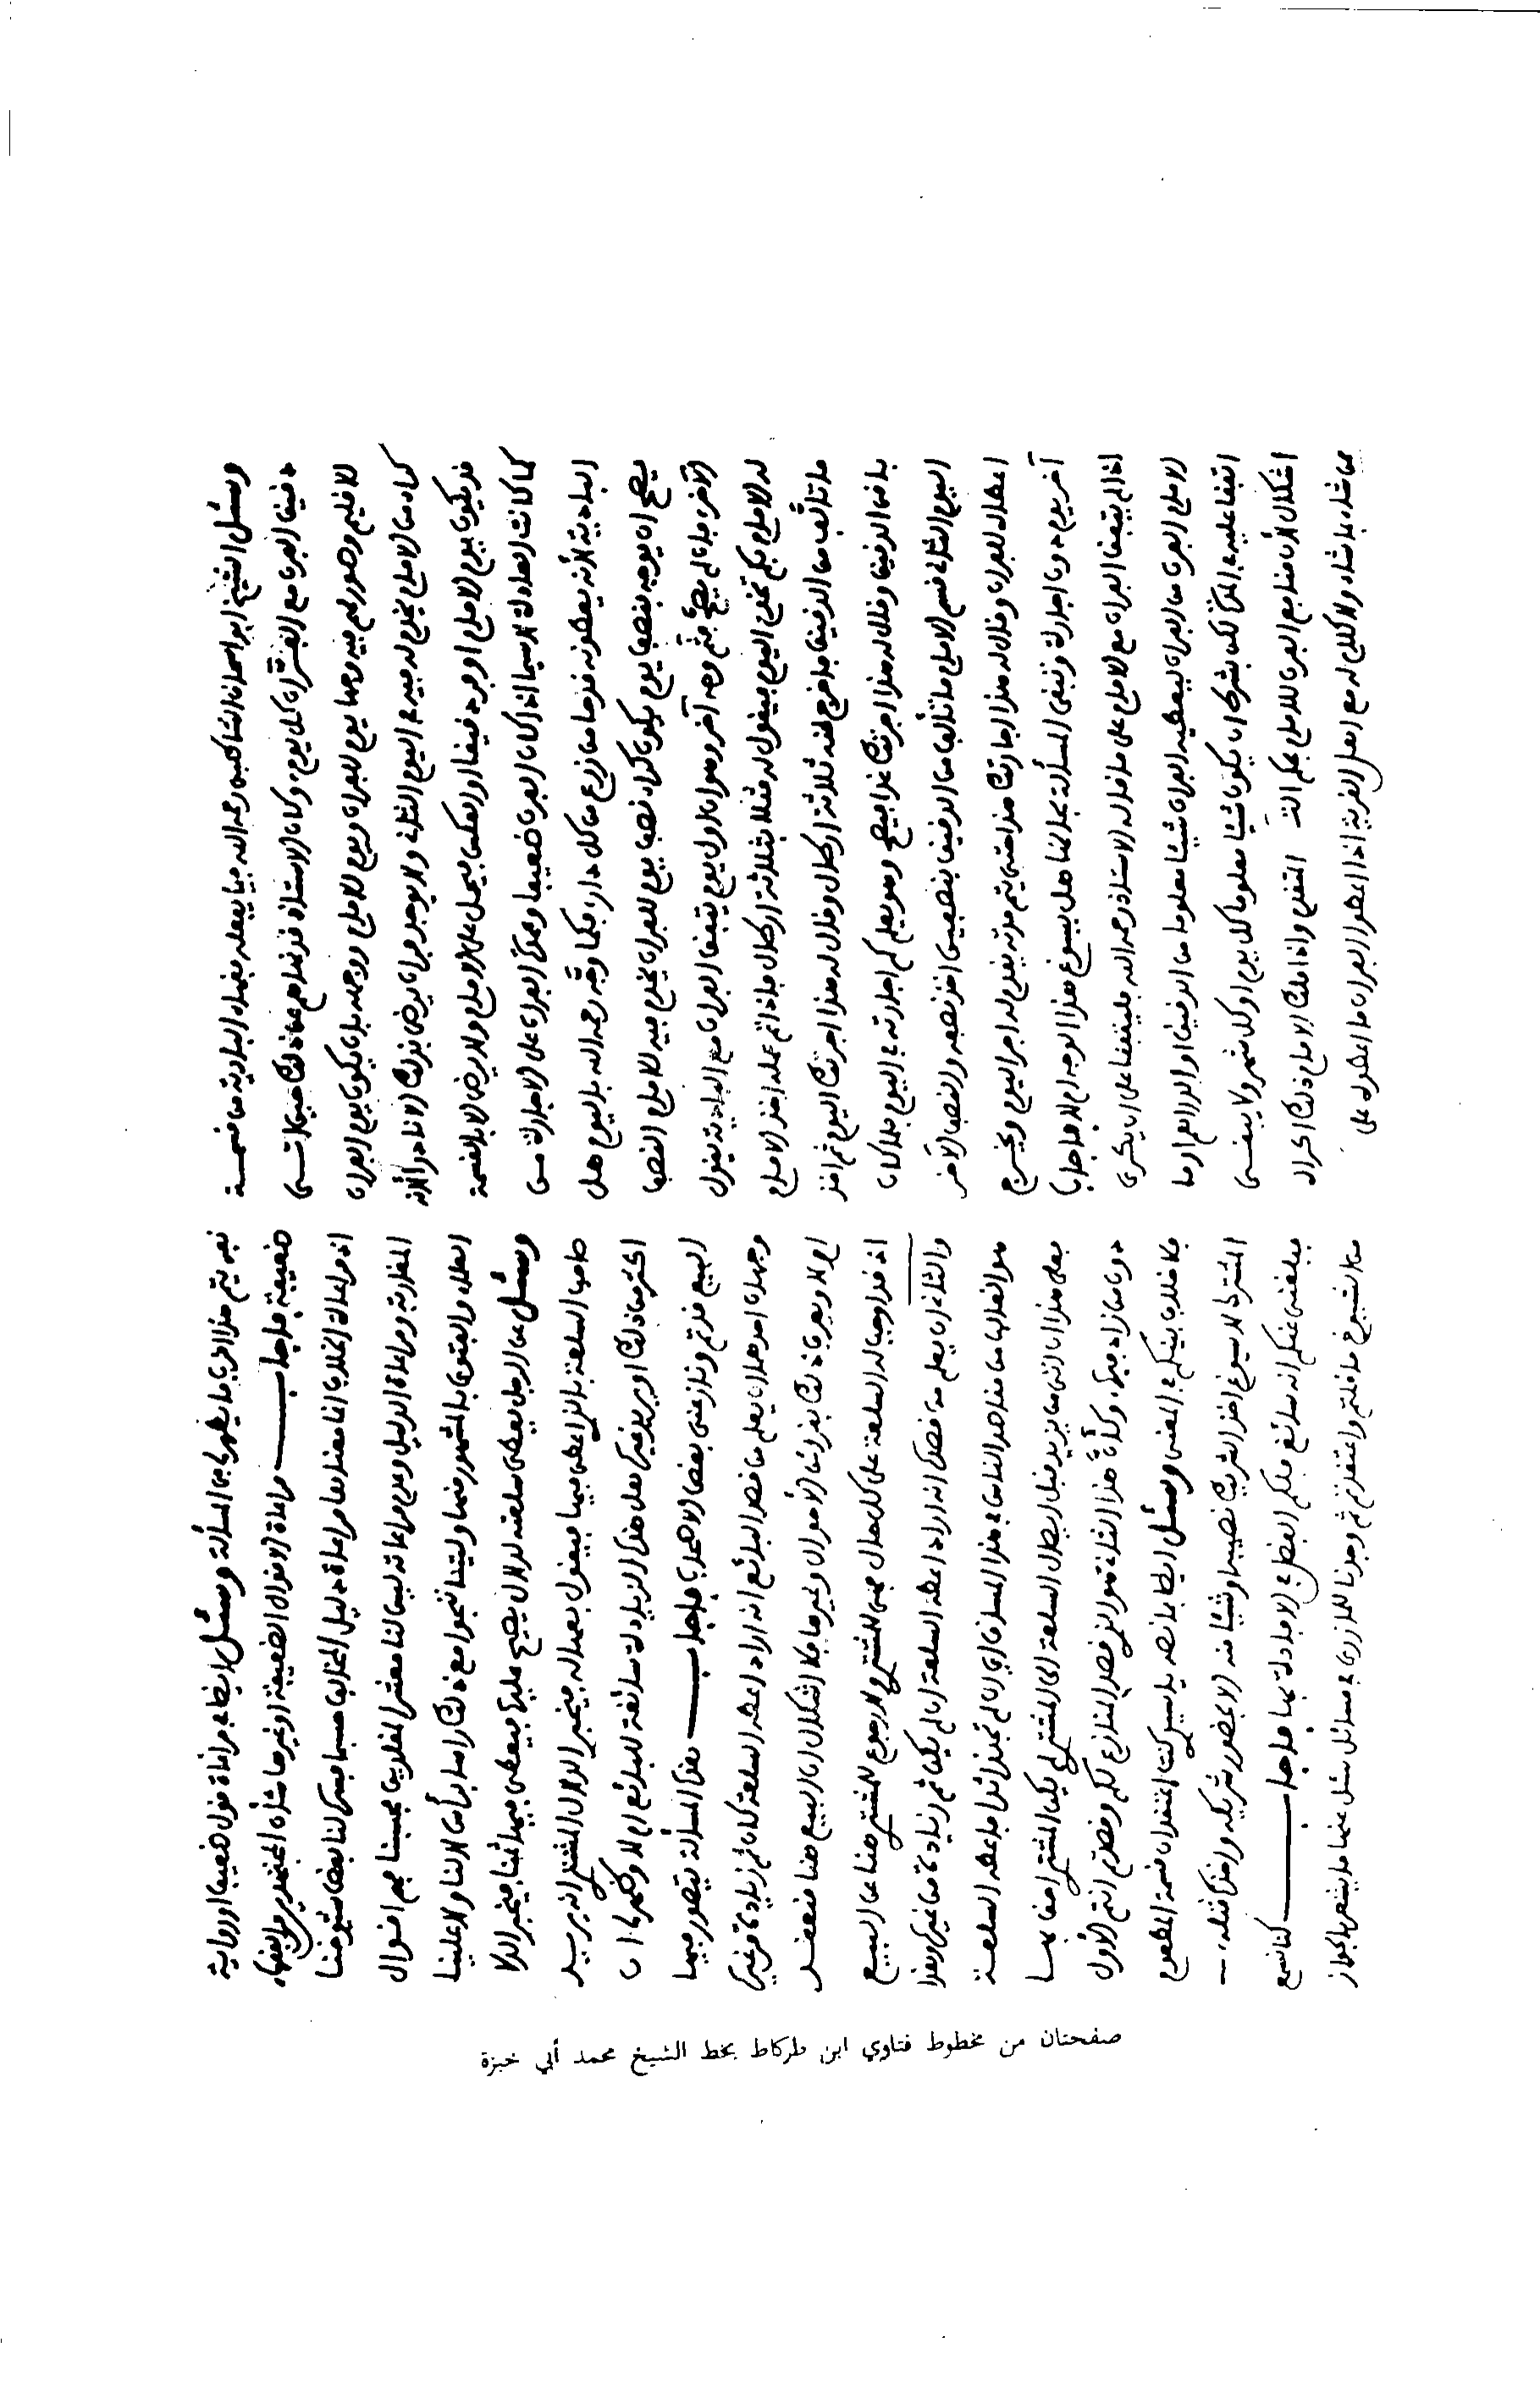 وسئل الشيخ ابو اسحاق الشاطبي رحمه الله فيما يفعله البادية من قسمة
دقيق الفرن مع الفران كل يوم وكان الاستاذ قد نهاهم عن ذلك
للامام يوم للفران ويوم للامام ووجهه بان يكون يوم الفران
كراء من الامام يخدم له فيه في اليوم الثاني ولا يوجد فران يرضى بذلك الا نادرا لانه
قد يكون يوم الامام اوفر دقيقا او العكس فيحمل على الامام ولا يرضى الا بالقسمة
كما كانت العادة لا سيما اذا كان الفرن ضعيفا وعمدة الفران على الاجارة من
البادية لانه يعطونه قدحا من زرع من كل دار فكما وجه رحمه الله باليوم هل
يصح ان يوجه بنصف يوم يكون كراء نصف يوم للفران يخدم فيه للامام النصف
الآخر فان لم يصح فثم وجه آخر وهو ان اول يوم يتفق الفران مع البادية يقول
له الامام بكم تخدم اليوم فيقول له مثلا بثلاثة ارطال فاذا تم عمله اخذ الامام
ما تألف من الدقيق فاخرج منه ثلاثة ارطال وقال له هذا اجرتك اليوم ثم اخذ
باقي الدقيق وقال له هذا اجرتك غدا فيصح وهو يعلم كم اجارته في اليوم فلما كان
اليوم الثاني قسم الامام ما تألف من الدقيق بنصفين اخذ نصفه والنصف الآخر
اعطاه للفران وقال له هذا اجارتك هذا حتى يتم مدته يقدم له اجر اليوم ويخرج
آخر يوم دون اجارة وتبقى المسألة بحالها هل يسوغ هذا الوجه ام لا فاجاب
اذا لم يتفق الفران مع الامام على ما قال الاستاذ رحمه الله فليتفقا على ان يكري
الامام الفرن من الفران فيعطيه الفران شيئا معلوما من الدقيق او الدراهم او ما
اتفقا عليه في الذمة لكن بشرط ان يكون شيئا معلوما كل يوم او كل شهر ولا يبقى
اشكال لان منافع الفرن للامام بحكم المتقدم واذا ملك الامام ذلك اكراه
ممن شاء بما شاء ولا كلام له مع اهل القرية اذا اعطوا الفران ما اعطوه على
نعم يتم هذا ان بان ما يظهر لي في المسألة وسئل ايضا في مراعاة قول ضعيف او رواية
ضعيفة فاجاب مراعاة الاقوال الضعيفة او غيرها شأن المجتهدين من الفقهاء
اذ مراعاة الخلاف انما معناها مراعاة دليل المخالف حسبما فسره لنا بعض شيوخنا
المغاربة ومراعاة الدليل وعدم مراعاته ليس لنا معشر المقلدين فحسبنا فهم اقوال
العلماء والفتوى بالمشهور منها وليتنا ننجو مع ذلك راسا برأس لا لنا ولا علينا
وسئل عن الرجل يعطي سلعته لدلال يصيح عليها فيعطى فيها ثمنا فيخبر الدلال
صاحب السلعة بالذي اعطى فيها فيقول بعها له فيخبر الدلال المشتري انه يريد
اكثر من ذلك او يزيد غيره هل هذه الزيادة سائغة للبائع ام لا وظهر ان
البيع قد تم ونازعني بعض الاصحاب فاجاب هذه المسألة يتصور فيها
وجهان احدهما ان يعلم من قصد البائع انه اراد اعطاء السلعة كان ثم زيادة من غيره
ام لا ويعرف ذلك بقرائن الاحوال وغيرها فلا اشكال ان البيع هنا منعقد
اذ قد اوجب له السلعة على كل حال فهي للمشتري ولا رجوع للمشتري هنا عن البيع
والثاني ان يعلم من قصده انه اراد اعطاء السلعة ان لم يكن ثم زيادة من غيره وهذا
هو الغالب من مقاصد الناس في هذا المساق اي ان لم تجد زائدا فاعطه السلعة
فعلى هذا ان اتى من يزيد قبل ايصال السلعة الى المشتري لم يكن المشتري احق بها
دون من زاد فيها وكأن هذا الثاني هو الذي قصد المنازع لكم وقصدتم انتم الاول
فلا خلاف بينكم في المعنى وسئل ايضا بما نصه يا سيدي كنت اعتقد ان قسمة الطعام
المشترك لا يسوغ اخذ الشريك نصيبه او شيئا منه الا بحضور شريكه واخذه مثله
فبلغني عنكم انه سائغ فلكم الفضل في الافادة بها فاجاب كنا نسمع
من الشيوخ ما قلتم واعتقدتم ثم وجدنا للمازري في مسائل سئل عنها ما يشعر بالجواز
صفحتان من مخطوط فتاوي ابن طركاط بخط الشيخ محمد أبي خبزة